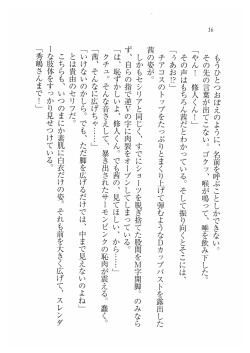 16
もうひとつおぼえのように、名前を呼ぶことしかできない。
その先の言葉が出てこない。ゴクッ、喉が鳴って、唾を飲み下した。
「やん！　修人くん！」
その声はもちろん茜だとわかっている。そして振り向くとそこには、
「うあお！?」
チアコスのトップをたっぷりとまくり上げて弾むようなDカップバストを露出した
茜の姿が。
しかもセシリアと同じく、すでにショーツを脱ぎ捨てた股間をM字開脚、のみなら
ず、自らの指で逆Vの字に肉裂をオープンしてしまっている。
「は、恥ずかしいよ、修人くん。でも茜の、見てほしい、から――」
クチュ。そんな音さえして、暴き出されたサーモンピンクの恥肉が震える。蠢く。
「茜、そんなに広げちゃ……」
「いけないのかしら。でも、ただ脚を広げるだけでは、中まで見えないのよね」
とは貴由のセリフだ。
こちらも、いつのまにか素肌に白衣だけの姿、それも前を大きく広げて、スレンダ
ーな肢体をすっかり見せつけている。
「秀嶋さんまで！」